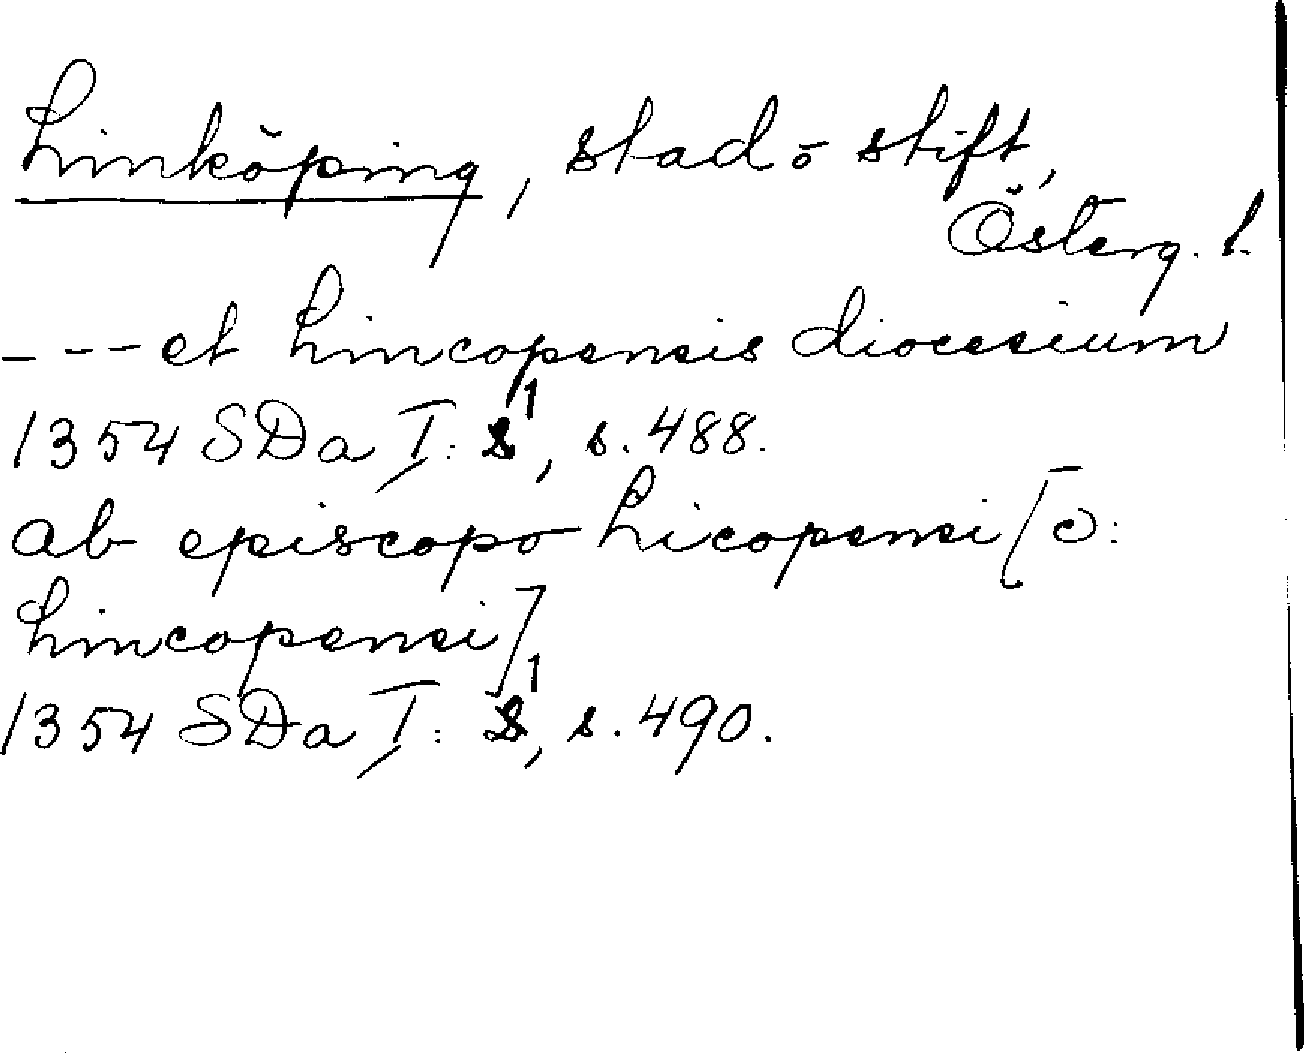 Linköping, stad ō stift,
Österg. l.
--- et Lincopensis diocesium
1354 SDa I: 1, s. 488.
ab episcopo Licopensi [ɔ:
Lincopensi]
1354 SDa I: 1, s. 490.